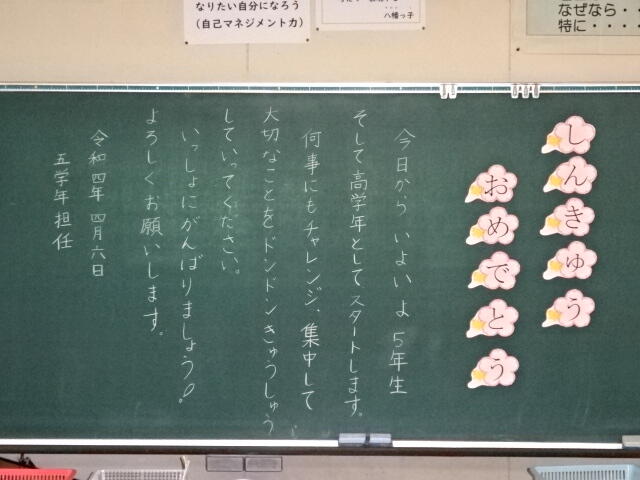 なりたい自分になろう
(自己マネジメント力)
八幡っ子
なぜなら・・
特に・・・・
しんきゅう
おめでとう
今日から いよいよ 5年生
そして高学年としてスタートします。
何事にもチャレンジ、集中して
大切なことをドンドンきゅうしゅう
していってください。
いっしょにがんばりましょう!
よろしくお願いします。
令和四年 四月六日
五学年担任